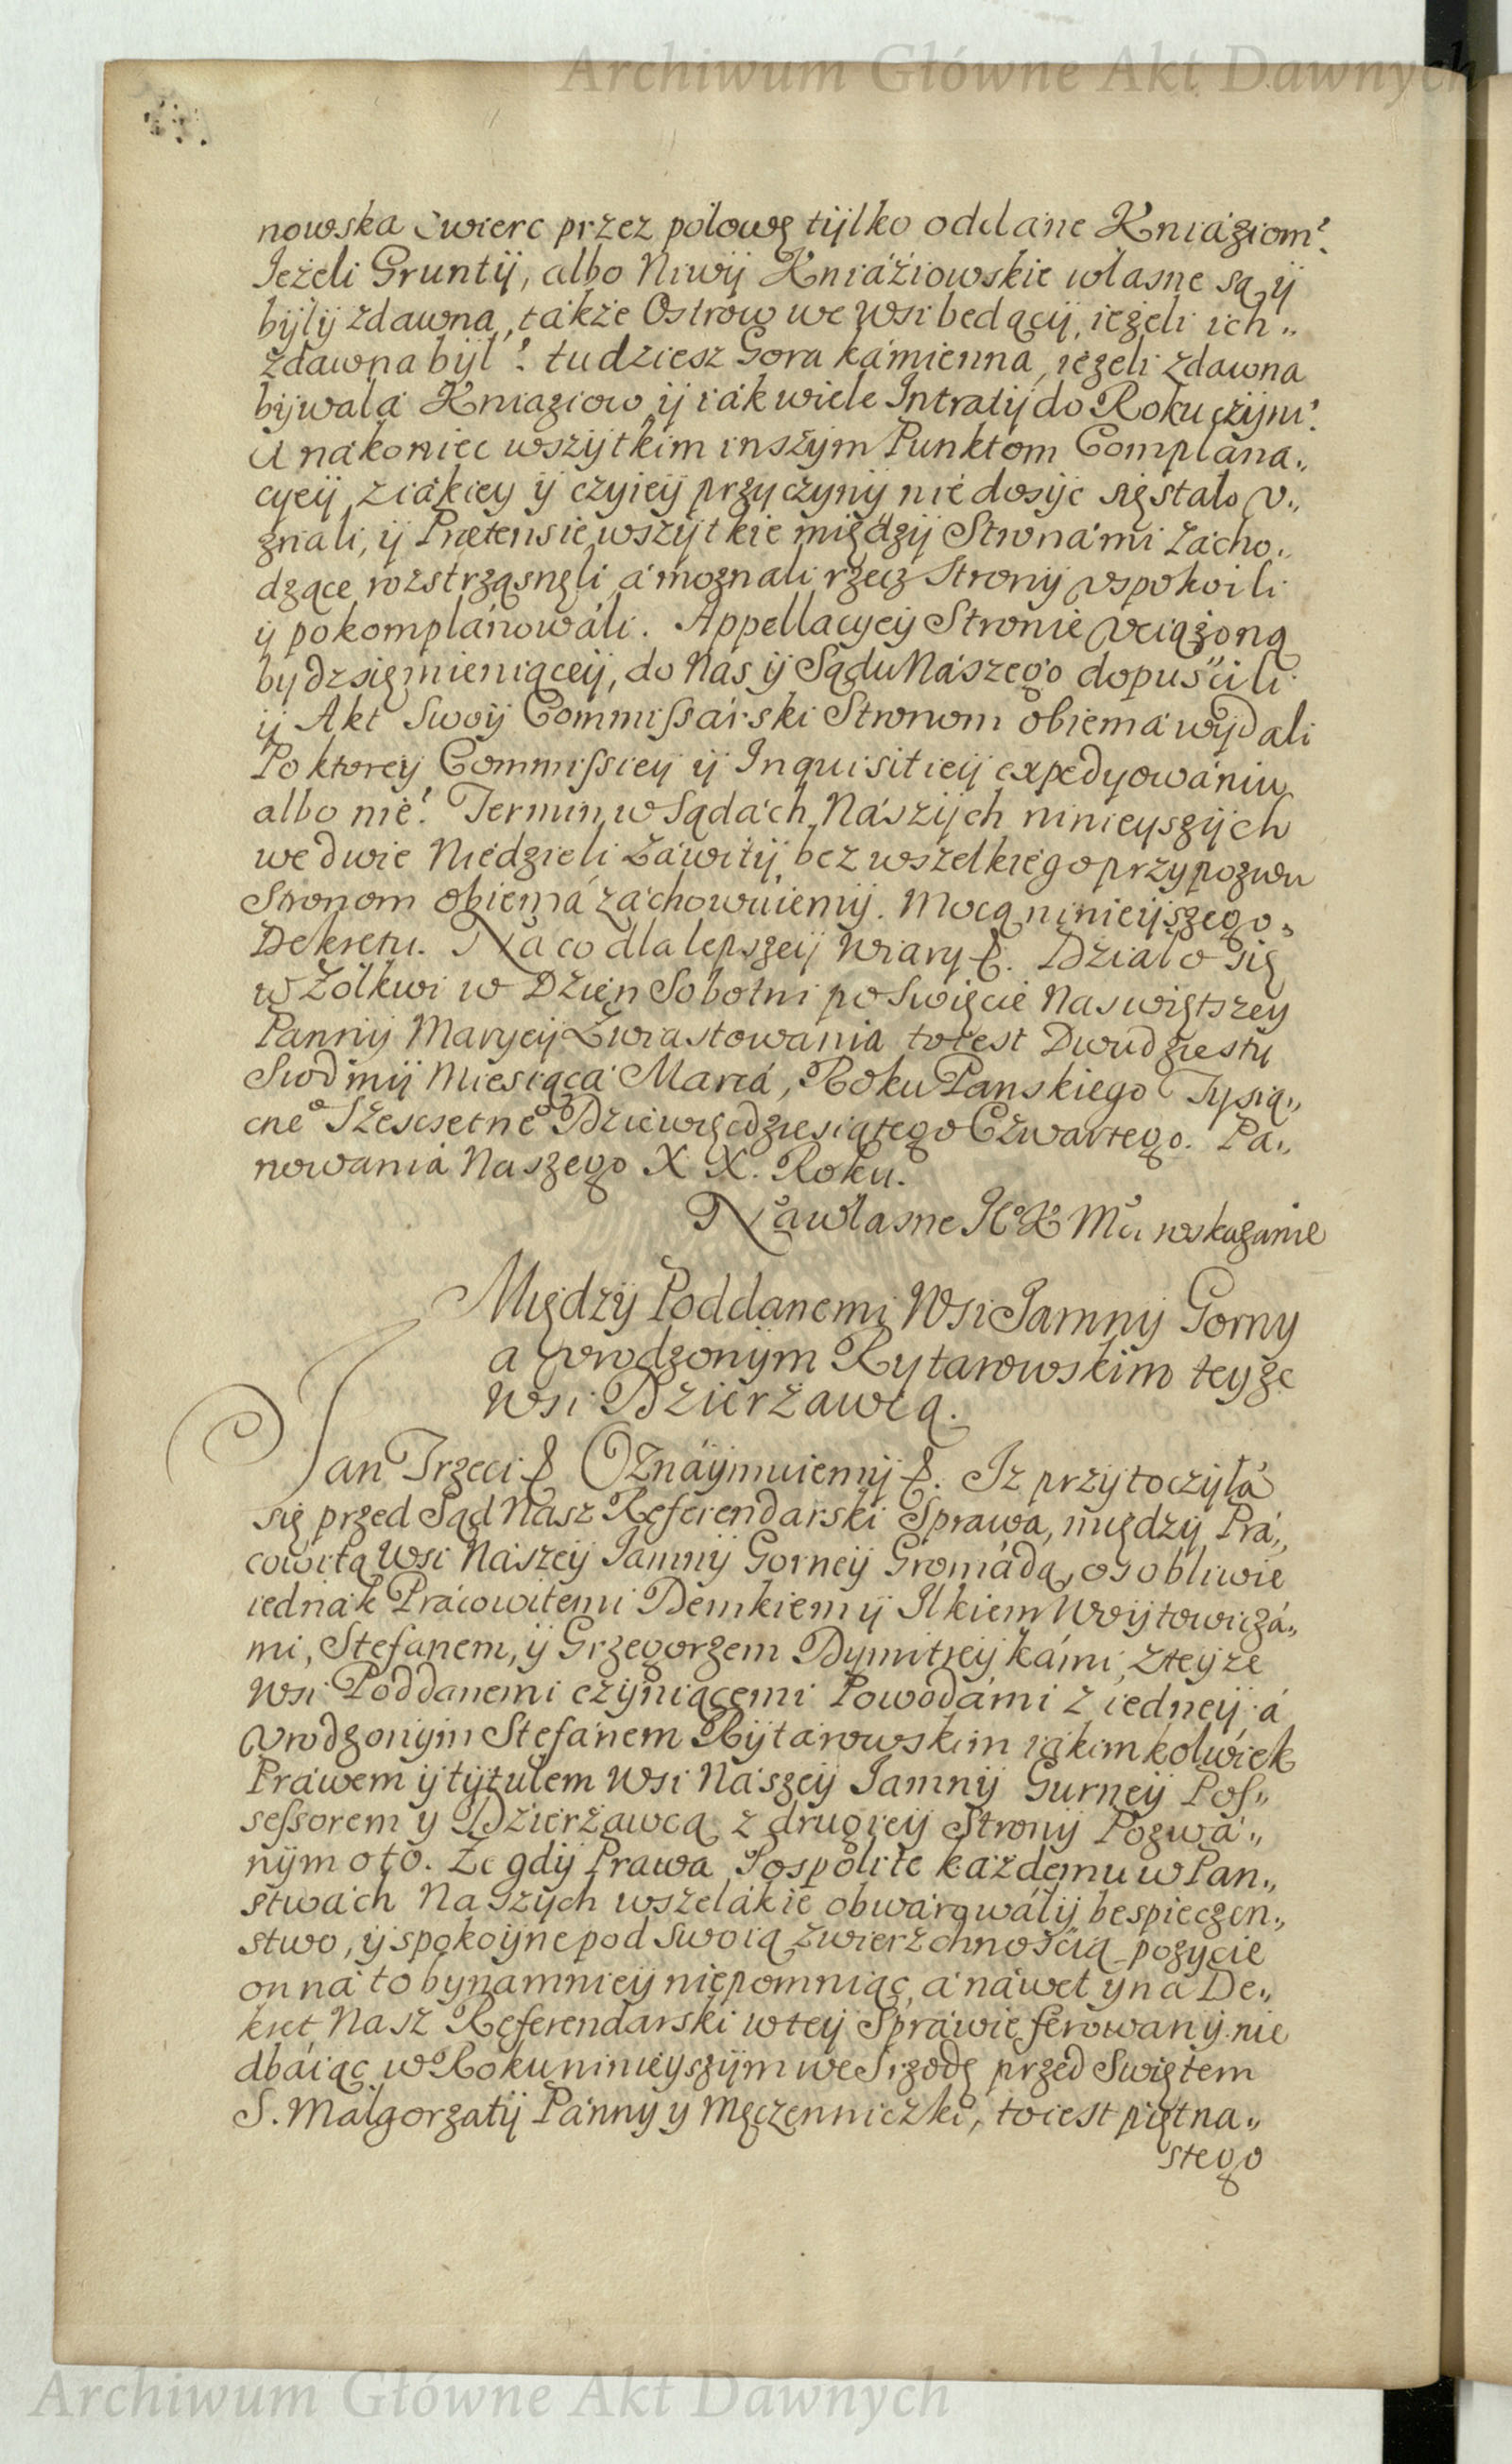 Archiwum Główne Akt Dawnych
nowska ćwierc przez połowę tylko oddane Kniáziom?
Ieżeli Grunty, albo Niwy Kniáźiowskie własne są y
były zdawna, także Ostrow we wsi bedący, ieżeli ich „
zdawna był? tudziesz Gora kámienna, ieżeli zdawna
bywała Kniaziow, y iák wiele Intraty do Roku czyni?
A nákoniec wszytkim inszym Punktom Complana„
cyey, z iákiey y czyiey przyczyny nie dosyć się stało v„
znali, y Prætensie wszytkie między Stronámi zácho„
dzące rozstrząsnęli, á moznali rzecz Strony vspokoili
y pokomplánowáli. Appellacyey Stronie vciążoną
bydz się mieniącey, do Nas y Sądu Nászego dopuścili
y Akt Swoy Commissárski Stronom obiema wydali
Po ktorey Commissiey y Inquisitiey expedyowániu
albo nie? Termin w Sądách Nászych ninieyszych
we dwie Niedzieli Zawity, bez wszelkiego przypozwu
Stronom obiema záchowuiemy. Mocą ninieyszego„
Dekretu. Na co dla lepszey wiary &. Działo się
w Zołkwi w Dzień Sobotni po Swięcie Naswiętszey
Panny Maryey Zwiastowania to iest Dwudziesty
Siodmy Miesiąca Marca, Roku Panskiego Tysią„
cneº Szescsetneº Dziewięcdziesiątego Czwartego. Pa„
nowania Naszego XX. Roku.
Na własne JºKMci wskazanie
Między Poddanemi Wsi Jamny Gorny
a Vrodzonym Rytarowskim teyże
Wsi Dzierżawcą.
Jan Trzeci & Oznáymuiemy &. Iz przytoczyłá
się przed Sąd Nasz Referendarski Sprawa, między Prá„
cowitą Wsi Nászey Jamny Gorney Gromádą, osobliwie
iednák Prácowitemi Demkiem y Ilkiem Woytowiczá„
mi, Stefanem, y Grzegorzem Dymitreykámi, z teyże
Wsi Poddanemi czyniącemi Powodámi z iedney á
Vrodzonym Stefánem Rytárowskim iákimkolwiek
Práwem y tytułem Wsi Nászey Jamny Gurney Pos„
sessorem y Dzierżawcą z drugiey Strony Pozwá„
nym o to. Ze gdy Prawa Pospolite káżdemu w Pan„
stwách Naszych wszelákie obwárowáły bespieczen„
stwo, y spokoyne pod swoią zwierzchnością pożycie
on ná to bynamniey niepomniąc, á náwet y ná De„
kret Nasz Referendarski w tey Spráwie ferowany nie
dbáiąc, w Roku ninieyszym we Srzodę przed Swiętem
S. Małgorzaty Pánny y Męczenniczki, to iest piętna„
stego
Archiwum Główne Akt Dawnych